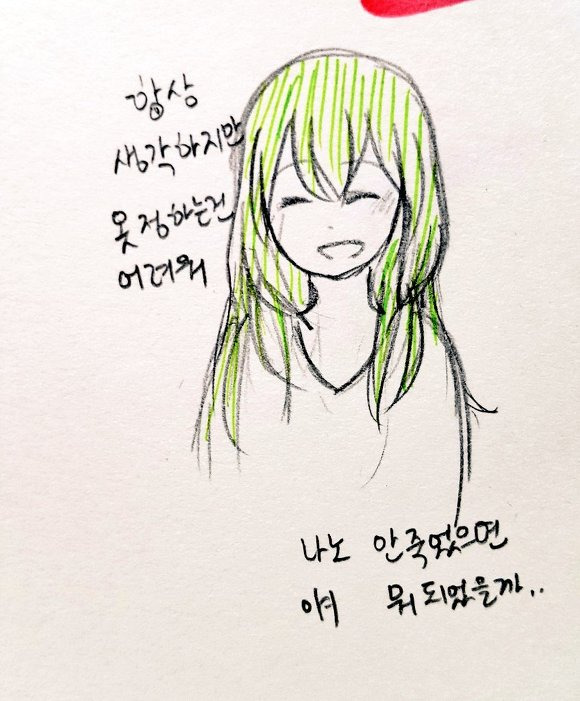 항상
생각하지만
옷 정하는건
어려워
나노 안죽었으면
야 뭐 되었을까..